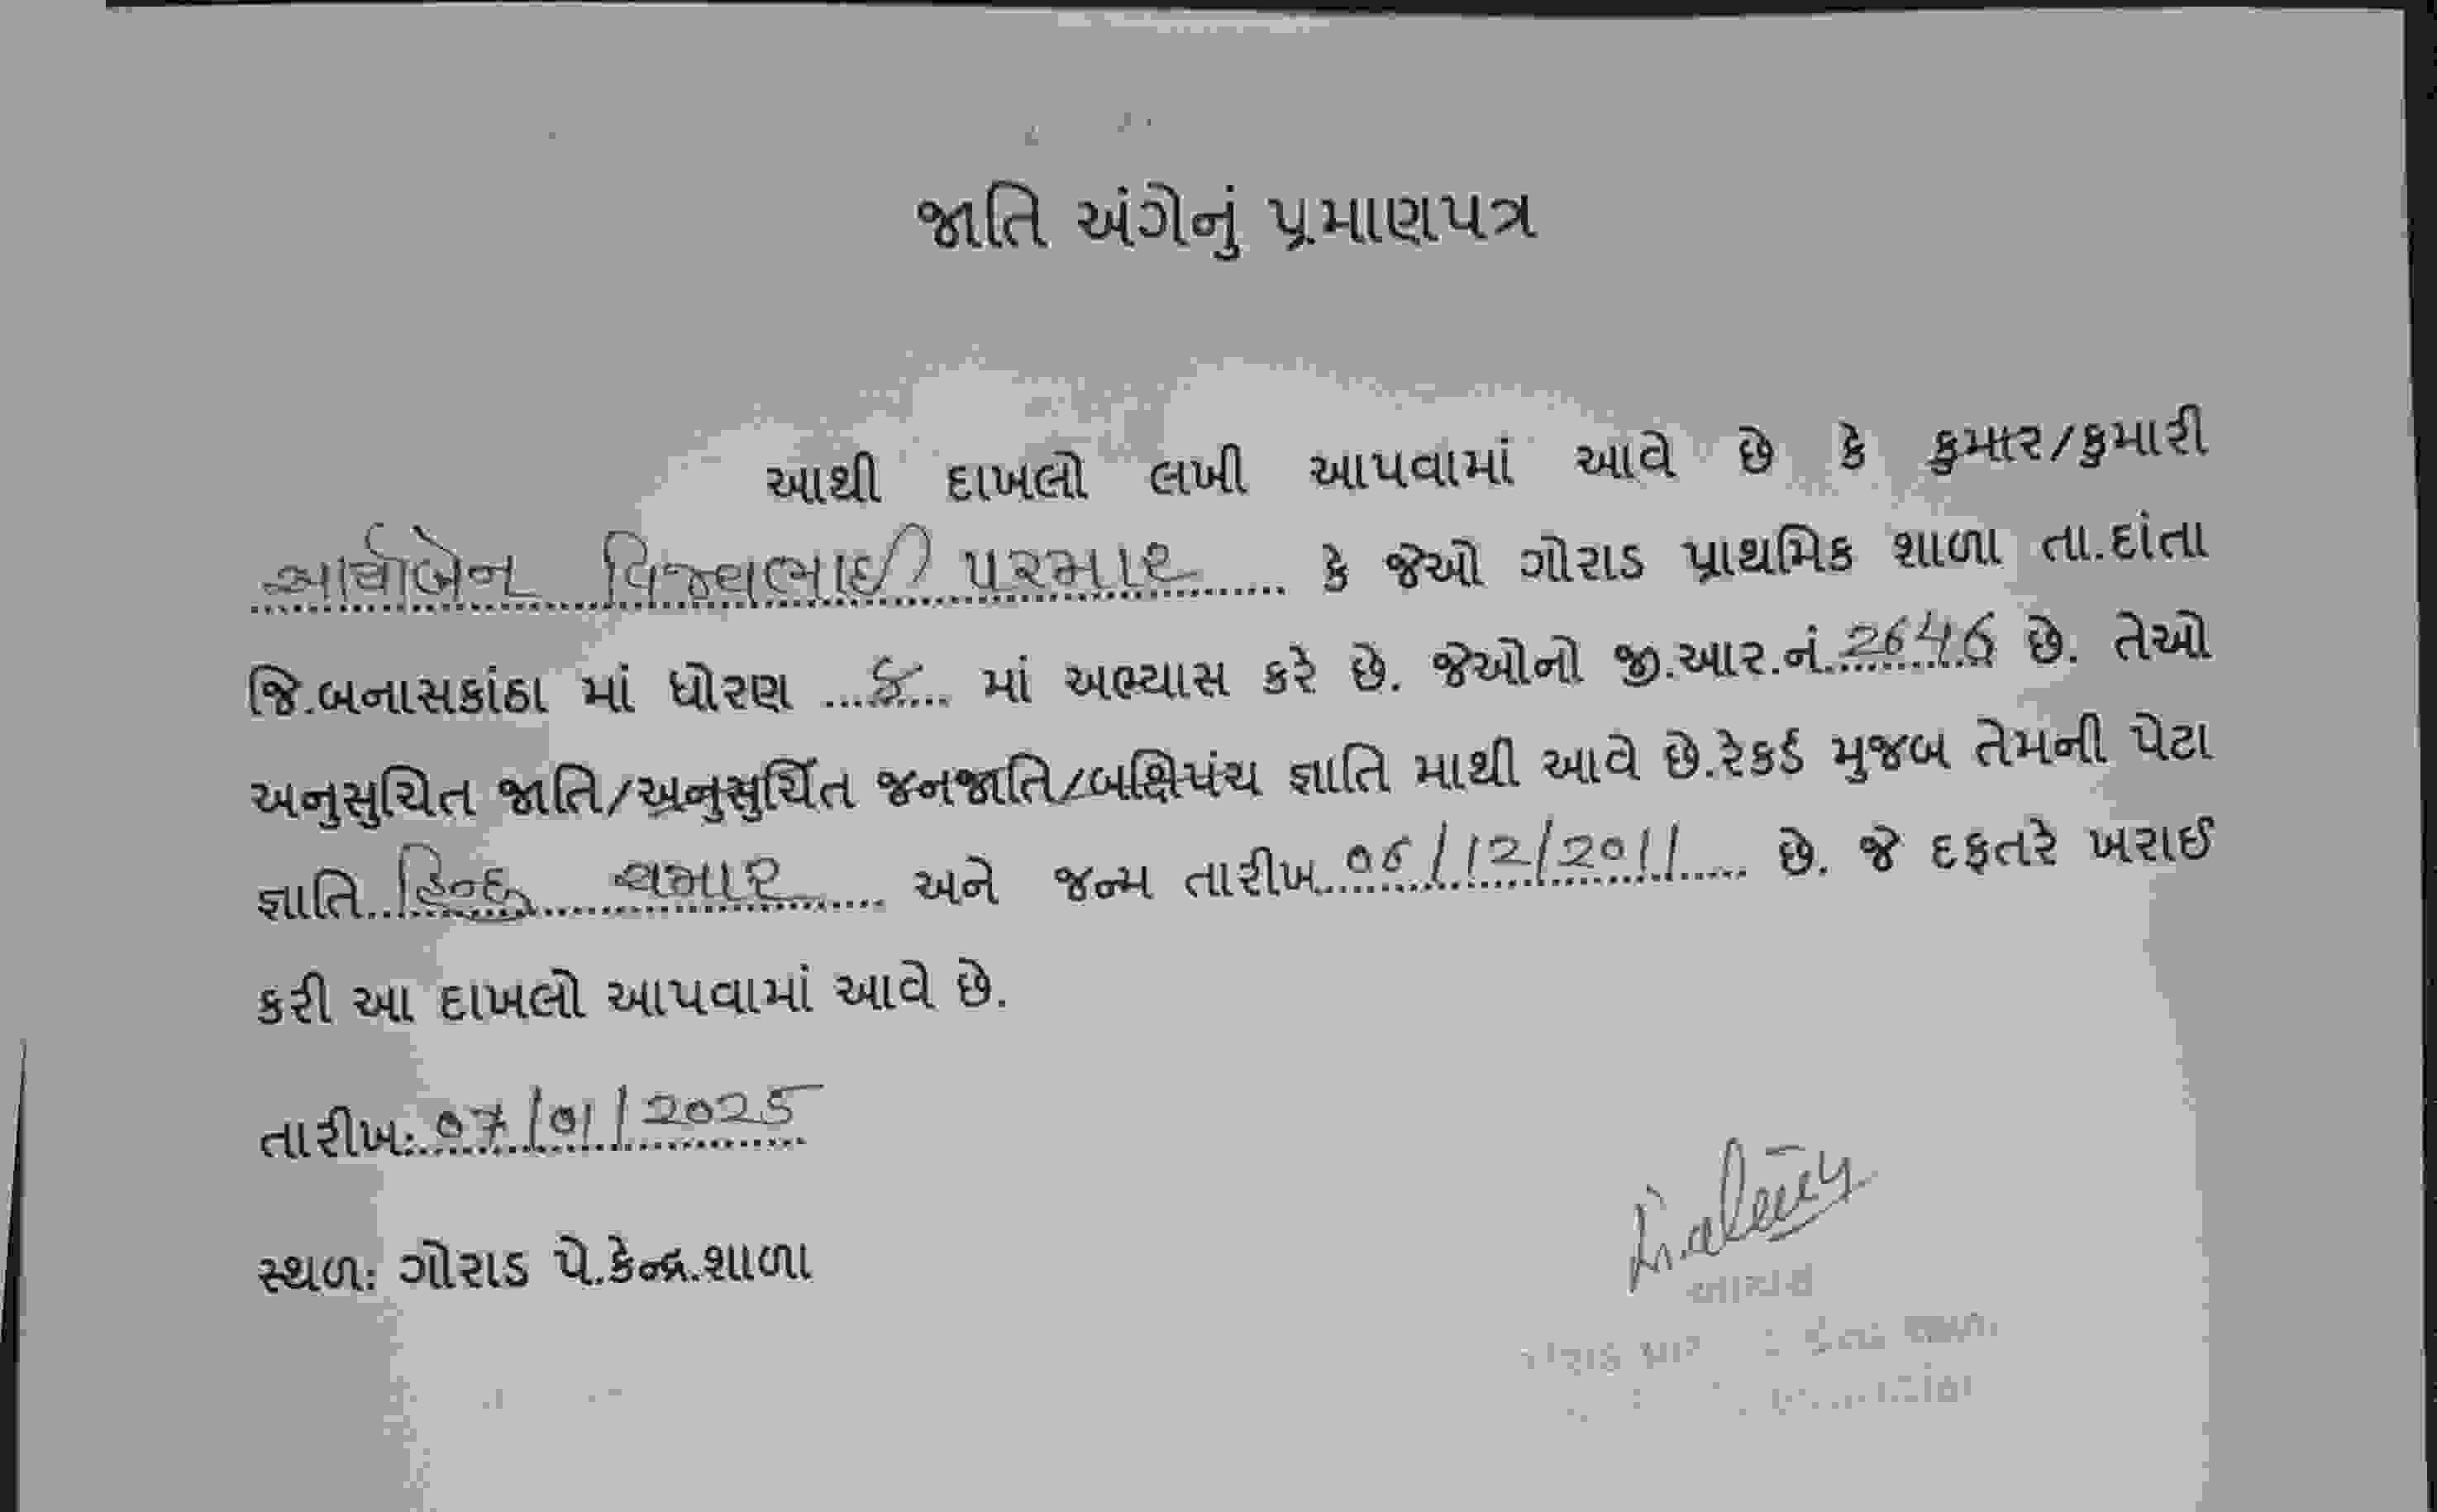 જાતિ અંગેનું પ્રમાણપત્ર
આથી દાખલો લખી આપવામાં આવે છે કે કુમાર/કુમારી
આર્યાબેન વિજયભાઈ પરમાર કે જેઓ ગોરાડ પ્રાથમિક શાળા તા.દાંતા
જિ.બનાસકાંઠા માં ધોરણ ........ માં અભ્યાસ કરે છે. જેઓનો જી.આર.નં.2646 છે. તેઓ
અનુસુચિત જાતિ/અનુસુચિત જનજાતિ/બક્ષિપંચ જ્ઞાતિ માથી આવે છે.રેકર્ડ મુજબ તેમની પેટા
જ્ઞાતિ હિન્દુ ચમાર અને જન્મ તારીખ 06/12/2011 છે. જે દફતરે ખરાઈ
કરી આ દાખલો આપવામાં આવે છે.
તારીખ: 07/01/2025
સ્થળ: ગોરાડ પે.કેન્દ્ર.શાળા
આચાર્ય